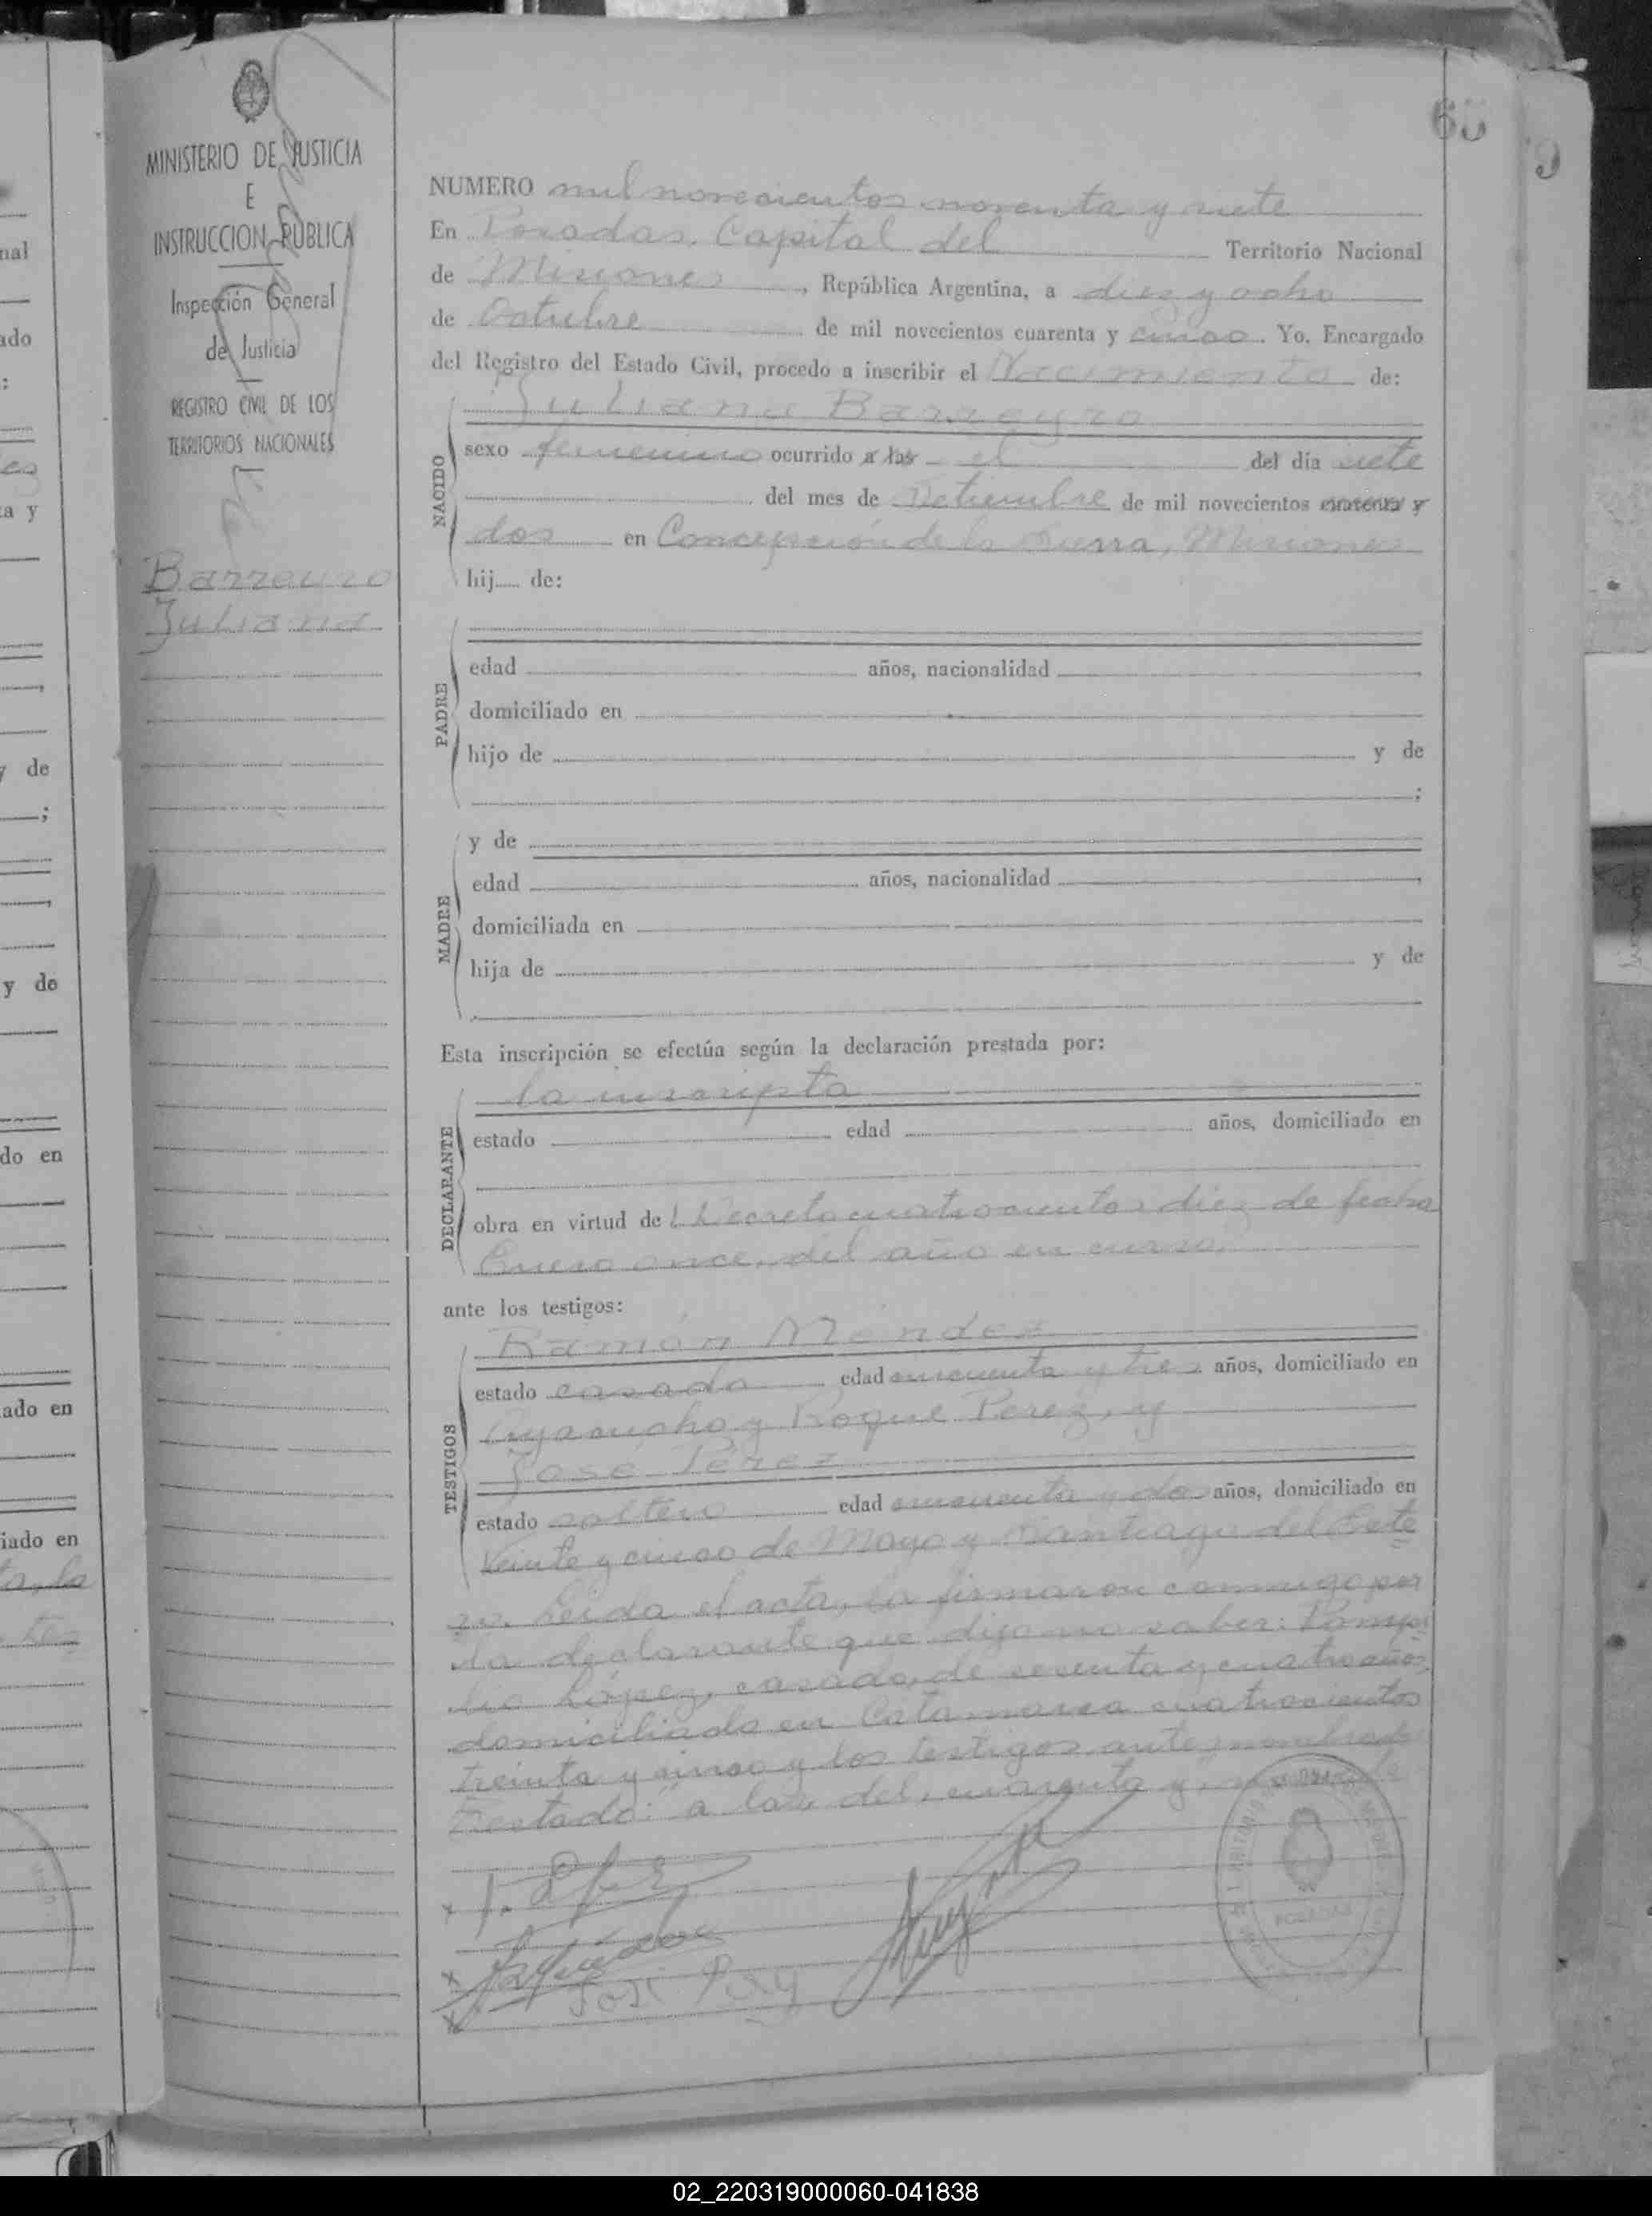 68
MINISTERIO DE JUSTICIA
E
INSTRUCCION PUBLICA
Inspección General
de Justicia
REGISTRO CIVIL DE LOS
TERRITORIOS NACIONALES
Barreyro
Juliana
NUMERO mil novecientos noventa y siete
En Posadas, Capital del Territorio Nacional
de Misiones, República Argentina, a diez y ocho
de Octubre de mil novecientos cuarenta y cinco. Yo, Encargado
del Registro del Estado Civil, procedo a inscribir el Nacimiento de:
NACIDO
Juliana Barreyro
sexo femenino ocurrido a las el del día siete
del mes de Setiembre de mil novecientos cuarenta y
dos en Concepción de la Sierra, Misiones
hij de:
PADRE
edad años, nacionalidad
domiciliado en
hijo de y de
;
MADRE
y de
edad años, nacionalidad
domiciliada en
hija de y de
Esta inscripción se efectúa según la declaración prestada por:
DECLARANTE
la inscripta
estado edad años, domiciliado en
obra en virtud de l Decreto cuatrocientos diez de fecha
Enero once, del año en curso
ante los testigos:
TESTIGOS
Ramón Méndez
estado casado edad cincuenta y tres años, domiciliado en
Ayacucho y Roque Perez, y
José Pérez
estado soltero edad cincuenta y dos años, domiciliado en
Veinte y cinco de Mayo y Santiago del Este
ro. Leida el acta, la firmaron conmigo por
la declarante que dijo no saber: Pompi
lio López, casado, de sesenta y cuatro años,
domiciliado en Catamarca cuatrocientos
treinta y cinco y los testigos antes nombrados
Testado: "a las, del, cuarenta y,
José Perez
POSADAS
nal
ado
:
es
ta y
y de
;
y de
do en
ado en
iado en
ta, la
tes
02_220319000060-041838